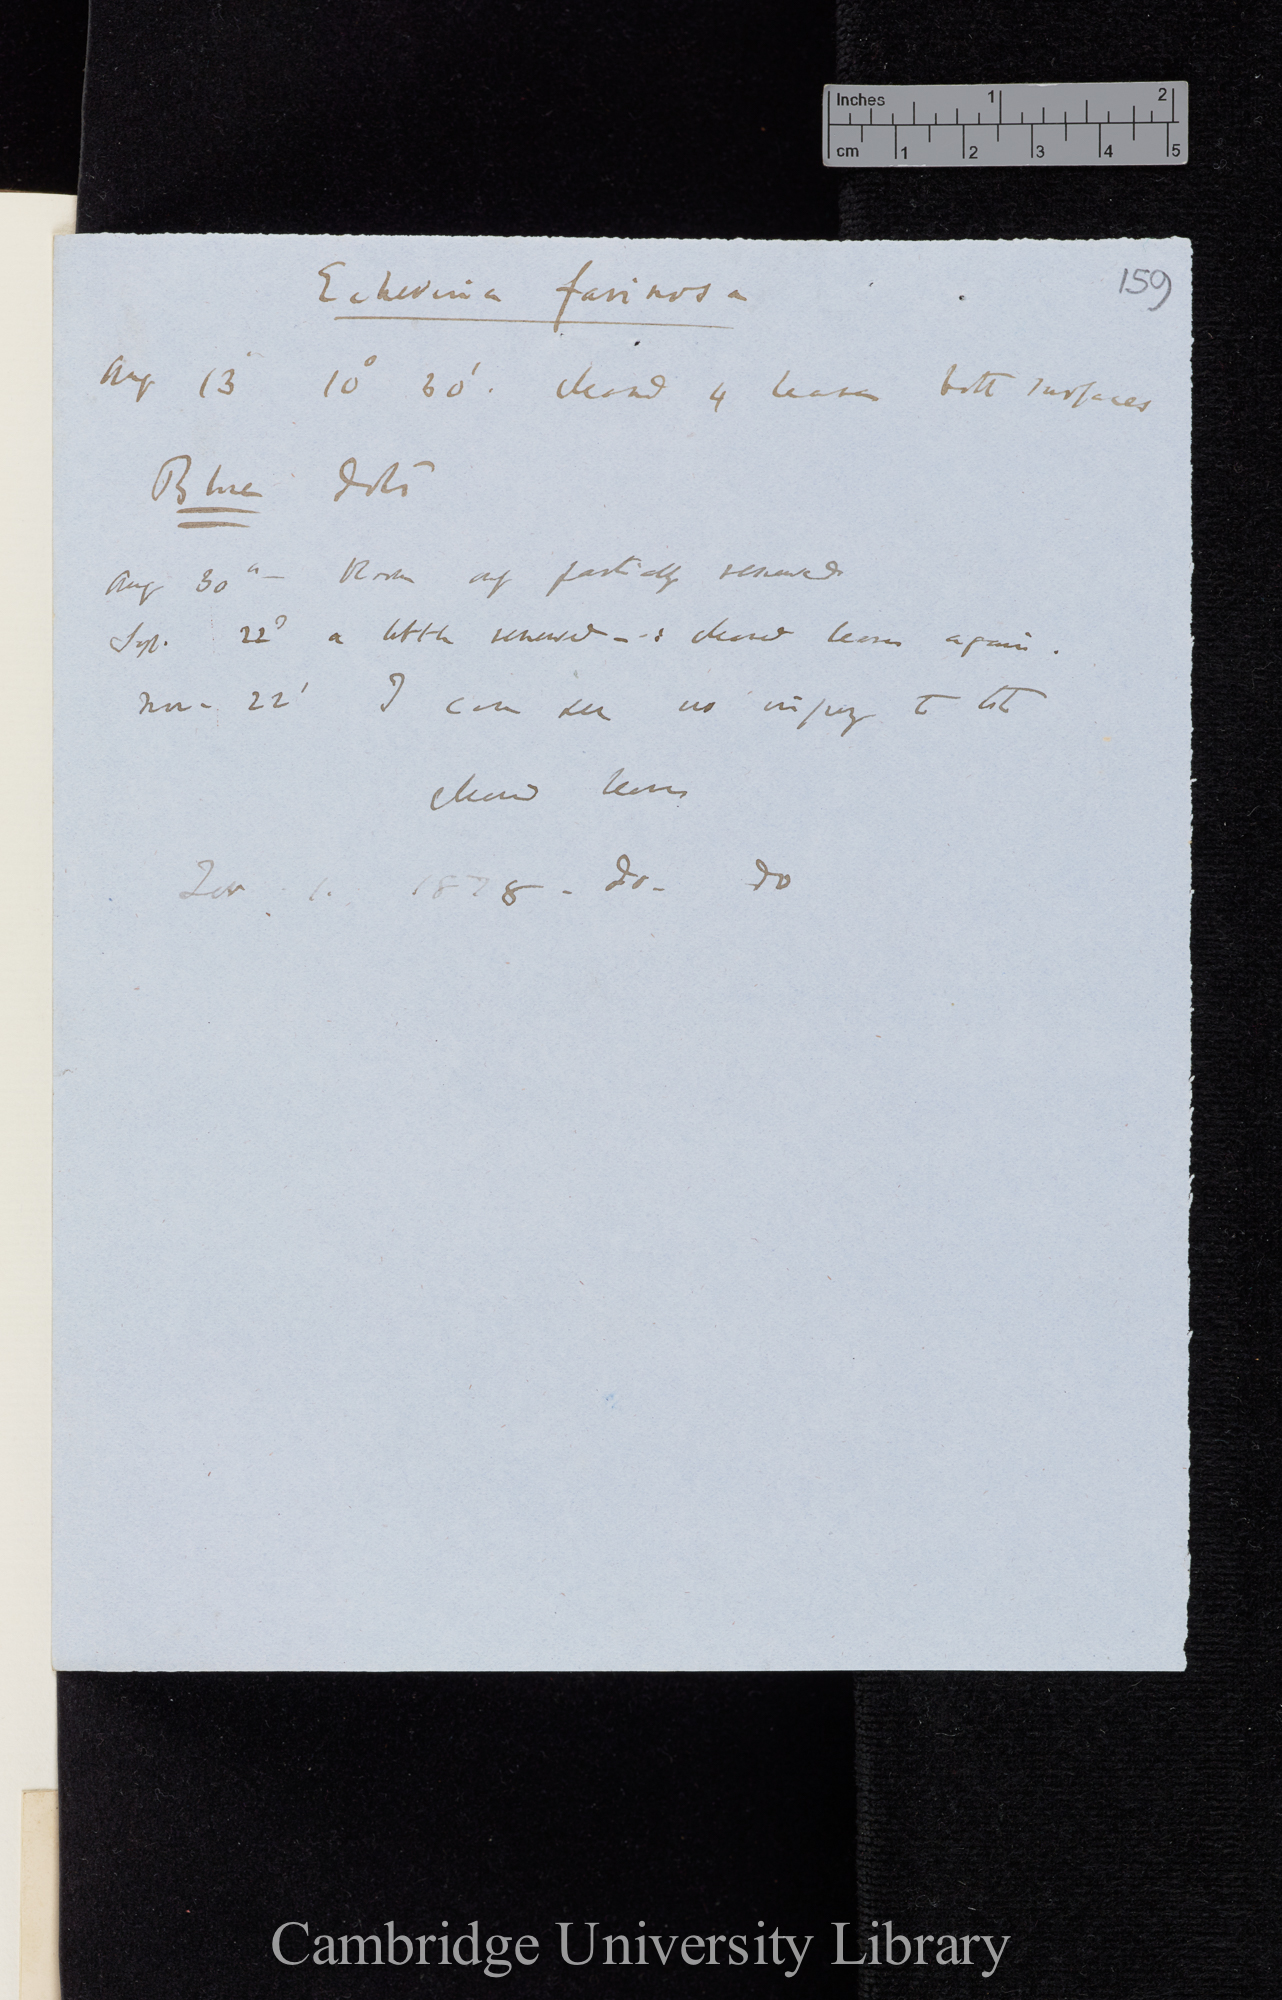 Inches 1 2
cm 1 2 3 4 5
159
Echeveria farinosa
Aug 13 10° 30'. cleaned 4 leaves both surfaces
Blue dots
Aug 30th — partially renewed
Sept. 22d a little renewed — : cleaned leaves again.
Nov 22' I can see no injury to the
cleaned leaves
Jan. 1. 1878 — do — do
Cambridge University Library